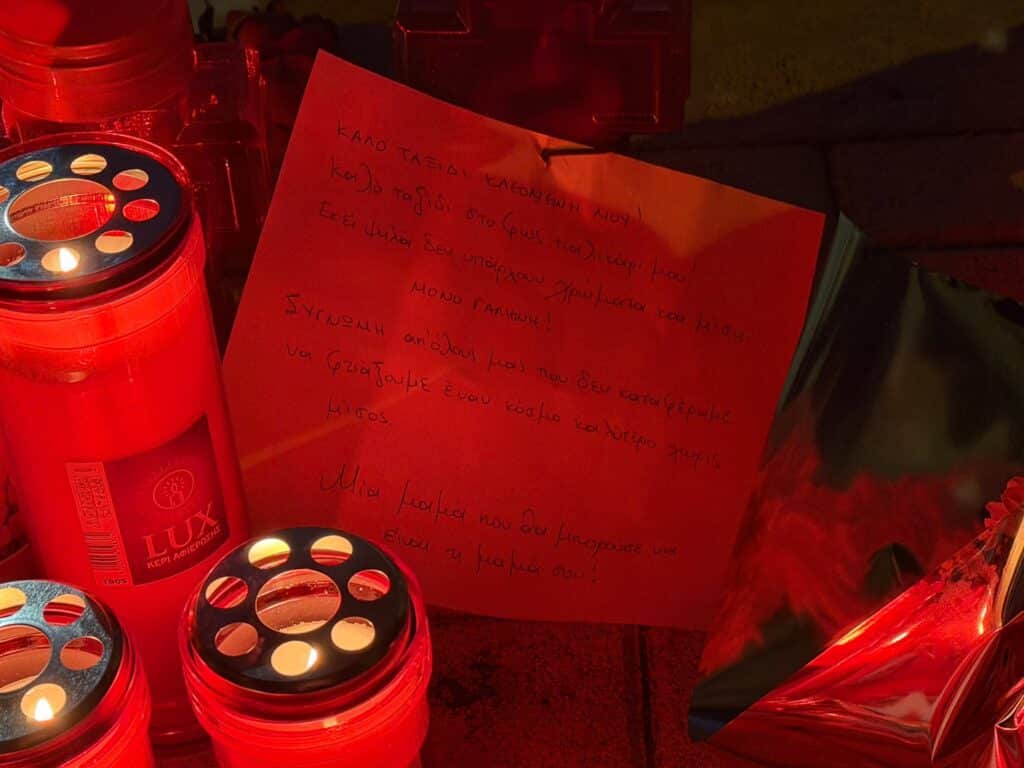 ΚΑΛΟ ΤΑΞΙΔΙ ΚΛΕΟΜΕΝΗ ΜΟΥ!
Καλό ταξίδι στο φως παλικάρι μου!
Εκεί ψηλά δεν υπάρχουν χρώματα και μίση
ΜΟΝΟ ΓΑΛΗΝΗ!
ΣΥΓΝΩΜΗ απ'όλους μας που δεν καταφέραμε
να φτιάξουμε έναν κόσμο καλύτερο χωρίς
μίσος
Μια μαμά που θα μπορούσε να
είναι η μαμά σου!
LUX
ΚΕΡΙ ΑΦΙΕΡΩΣΗΣ